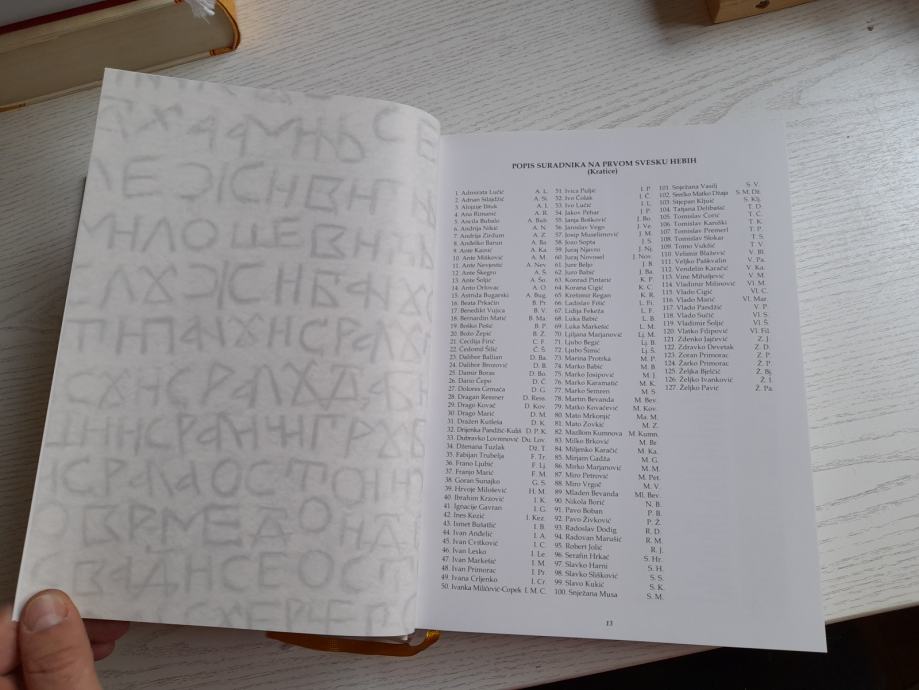 POPIS SURADNIKA NA PRVOM SVESKU HEBIH
(Kratice)
1. Admirata Lučić A. L.
2. Adnan Silajdžić A. Si.
3. Alojzije Ištuk A. I.
4. Ana Rimanić A. R.
5. Ancila Bubalo A. Bub.
6. Andrija Nikić A. N.
7. Andrija Zirdum A. Z.
8. Anđelko Barun A. Ba.
9. Ante Kaznić A. Ka.
10. Ante Mišković A. M.
11. Ante Nevjestić A. Nev.
12. Ante Škegro A. Š.
13. Ante Šoljić A. Šo.
14. Anto Orlovac A. O.
15. Astrida Bugarski A. Bug.
16. Beata Prkačin B. Pr.
17. Benedikt Vujica B. V.
18. Bernardin Matić B. Ma.
19. Boško Pešić B. P.
20. Božo Žepić B. Ž.
21. Cecilija Firić C. F.
22. Čedomil Šilić Č. Š.
23. Dalibor Ballian D. Ba.
24. Dalibor Brozović D. B.
25. Damir Boras D. Bo.
26. Dario Čepo D. Č.
27. Dolores Grmača D. G.
28. Dragan Ressner D. Ress.
29. Drago Kovač D. Kov.
30. Drago Marić D. M.
31. Dražen Kutleša D. K.
32. Drijenka Pandžić-Kuliš D. P. K.
33. Dubravko Lovrenović Du. Lov.
34. Dženana Tuzlak Dž. T.
35. Fabijan Trubelja F. Tr.
36. Frano Ljubić F. Lj.
37. Franjo Marić F. M.
38. Goran Sunajko G. S.
39. Hrvoje Milošević H. M.
40. Ibrahim Krzović I. K.
41. Ignacije Gavran I. G.
42. Ines Kezić I. Kez.
43. Ismet Bušatlić I. B.
44. Ivan Anđelić I. A.
45. Ivan Cvitković I. C.
46. Ivan Lesko I. Le.
47. Ivan Markešić I. M.
48. Ivan Primorac I. Pr.
49. Ivana Crljenko I. Cr.
50. Ivanka Miličević-Capek I. M. C.
51. Ivica Puljić I. P.
52. Ivo Čolak I. Č.
53. Ivo Lučić I. L.
54. Jakov Pehar J. P.
55. Janja Bošković J. Bo.
56. Jaroslav Vego J. Ve.
57. Josip Muselimović J. M.
58. Jozo Sopta J. S.
59. Juraj Njavro J. Nj.
60. Juraj Novosel J. Nov.
61. Jure Beljo J. B.
62. Juro Babić J. Ba.
63. Konrad Pintarić K. P.
64. Korana Cigić K. C.
65. Krešimir Regan K. R.
66. Ladislav Fišić L. Fi.
67. Lidija Fekeža L. F.
68. Luka Babić L. B.
69. Luka Markešić L. M.
70. Ljiljana Marjanović Lj. M.
71. Ljubo Begić Lj. B.
72. Ljubo Šimić Lj. Š.
73. Marina Protrka M. P.
74. Marko Babić M. B.
75. Marko Josipović M. J.
76. Marko Karamatić M. K.
77. Marko Semren M. S.
78. Martin Bevanda M. Bev.
79. Matko Kovačević M. Kov.
80. Mato Mrkonjić Ma. M.
81. Mato Zovkić M. Z.
82. Mazllom Kumnova M. Kumn.
83. Milko Brković M. Br.
84. Miljenko Karačić M. Ka.
85. Mirjam Gadža M. G.
86. Mirko Marjanović M. M.
87. Miro Petrović M. Pet.
88. Miro Vrgoč M. V.
89. Mladen Bevanda Ml. Bev.
90. Nikola Borić N. B.
91. Pavo Boban P. B.
92. Pavo Živković P. Ž.
93. Radoslav Dodig R. D.
94. Radovan Marušić R. M.
95. Robert Jolić R. J.
96. Serafin Hrkać S. Hr.
97. Slavko Harni S. H.
98. Slavko Slišković S. S.
99. Slavo Kukić S. K.
100. Snježana Musa S. M.
101. Snježana Vasilj S. V.
102. Srećko Matko Džaja S. M. Dž.
103. Stjepan Kljuić S. Klj.
104. Tatjana Delibašić T. D.
105. Tomislav Ćorić T. Ć.
106. Tomislav Kardški T. K.
107. Tomislav Premerl T. P.
108. Tomislav Slokar T. S.
109. Tomo Vukšić T. V.
110. Velimir Blažević V. Bl.
111. Veljko Paškvalin V. Pa.
112. Vendelin Karačić V. Ka.
113. Vine Mihaljević V. M.
114. Vladimir Milinović Vl. M.
115. Vlado Cigić Vl. C.
116. Vlado Marić Vl. Mar.
117. Vlado Pandžić V. P.
118. Vlado Sučić Vl. S.
119. Vladimir Šoljić Vl. Š.
120. Vlatko Filipović Vl. Fil.
121. Zdenko Jajčević Z. J.
122. Zdravko Devetak Z. D.
123. Zoran Primorac Z. P.
124. Žarko Primorac Ž. P.
125. Željka Bjelčić Ž. Bj.
126. Željko Ivanković Ž. I.
127. Željko Pavić Ž. Pa.
13